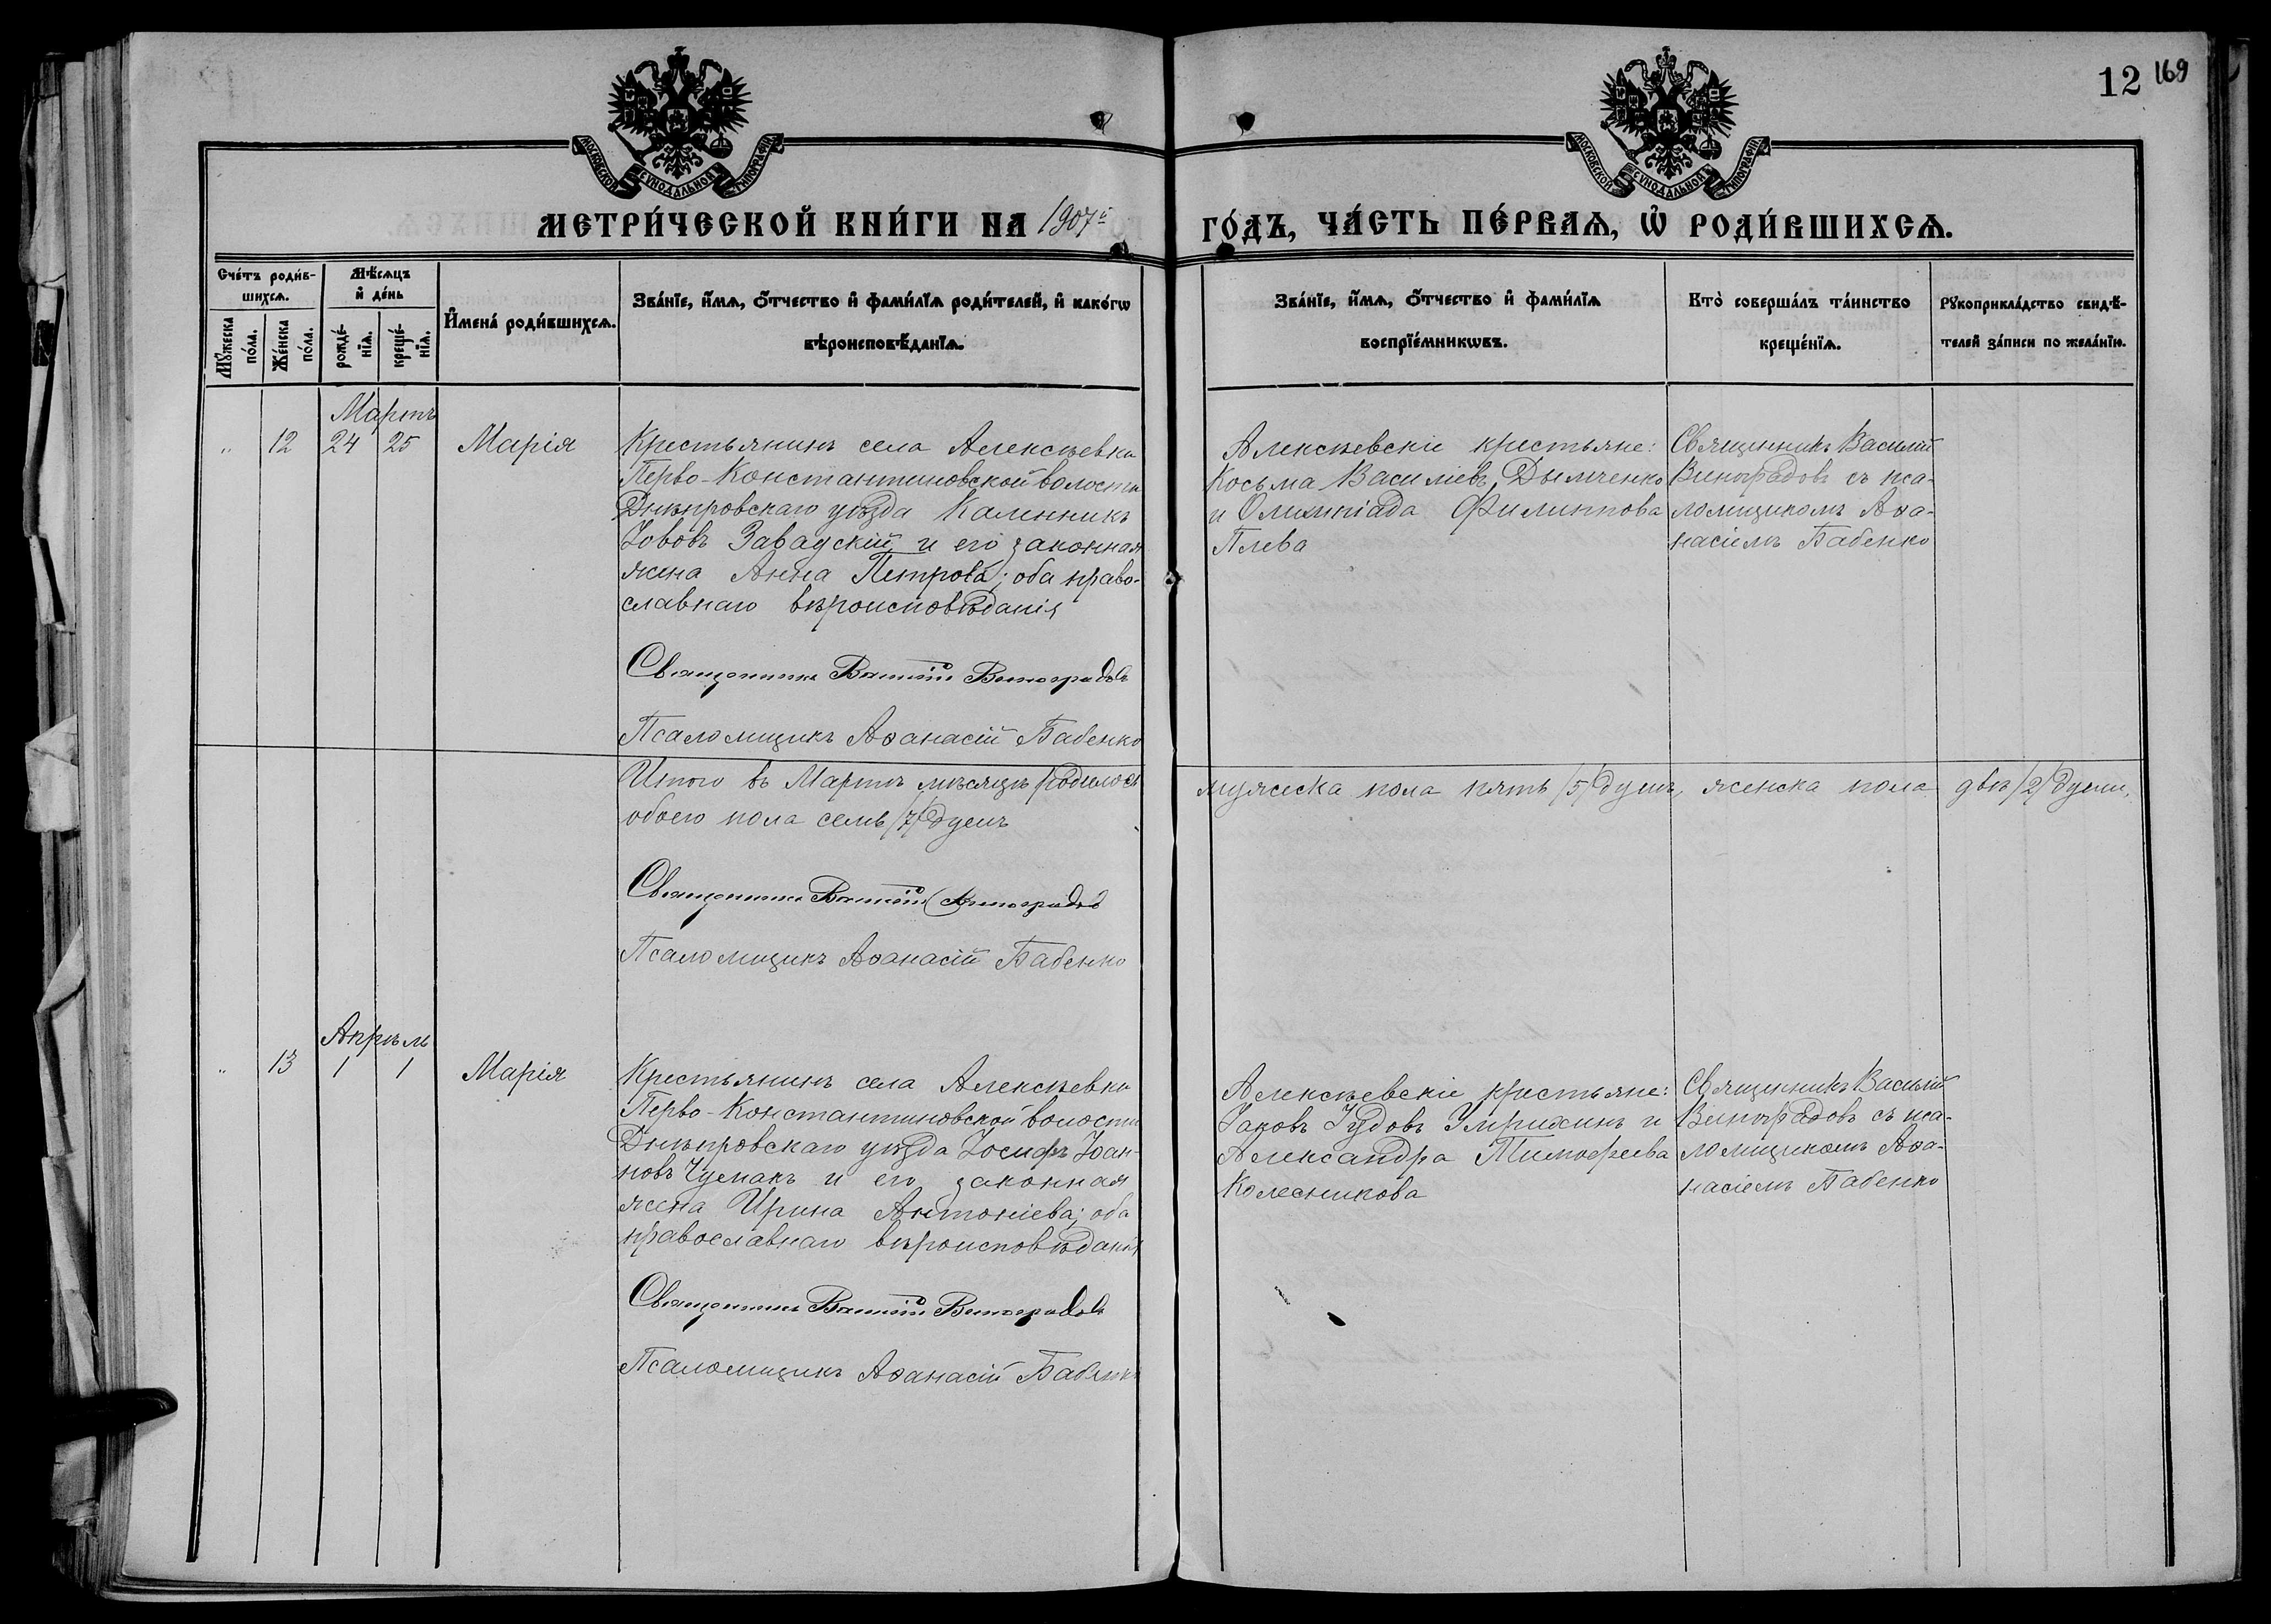 12 169
МОСКОВСКОЙ СѴНОДАЛЬНОЙ ТИПОГРАФІИ
МОСКОВСКОЙ СѴНОДАЛЬНОЙ ТИПОГРАФІИ
МЕТРИ́ЧЕСКОЙ КНИ́ГИ НА 1907й ГО́ДЪ, ЧА́СТЬ ПЕ́РВАѦ, Ѡ҆ РОДИ́ВШИХСѦ.
Сче́тъ роди́в-
шихсѧ.
Мꙋ́жеска
по́ла.
Же́нска
по́ла.
Мѣ́сѧцъ
и҆ де́нь
рожде́-
нїѧ.
креще́-
нїѧ.
И҆мена̀ роди́вшихсѧ.
Зва́нїе, и҆́мѧ, ѻ҆́тчество и҆ фами́лїѧ роди́телей, и҆ како́гѡ
вѣроисповѣ́данїѧ.
Зва́нїе, и҆́мѧ, ѻ҆́тчество и҆ фами́лїѧ
воспрїе́мникѡвъ.
Кто̀ соверша́лъ та́инство
креще́нїѧ.
Рꙋкоприкла́дство свидѣ́-
телей за́писи по жела́нїю.
Мартъ
" 12 24 25 Марія
Крестьянинъ села Алексѣевки
Перво-Константиновской волости
Днѣпровскаго уѣзда Каленникъ
Іововъ Завадскій и его законная
жена Анна Петрова; оба право-
славнаго вѣроисповѣданія
Священникъ Василій Виноградовъ
Псаломщикъ Аѳанасій Бабенко
Алексѣевскіе крестьяне:
Косьма Василіевъ Дымченко
и Олимпіада Филиппова
Плева
Священникъ Василій
Виноградовъ съ пса-
ломщикомъ Аѳа-
насіемъ Бабенко
Итого въ Мартѣ мѣсяцѣ родилось мужеска пола пять /5/ душъ, женска пола двѣ /2/ души,
обоего пола семь /7/ душъ
Священникъ Василій Виноградовъ
Псаломщикъ Аѳанасій Бабенко
Апрѣль
" 13 1 1 Марія
Крестьянинъ села Алексѣевки
Перво-Константиновской волости
Днѣпровскаго уѣзда Іосифъ Іоан-
новъ Чумакъ и его законная
жена Ирина Антоніева; оба
православнаго вѣроисповѣданія
Священникъ Василій Виноградовъ
Псаломщикъ Аѳанасій Бабенко
Алексѣевскіе крестьяне:
Іаковъ Іудовъ Умрихинъ и
Александра Тимофеева
Колесникова
Священникъ Василій
Виноградовъ съ пса-
ломщикомъ Аѳа-
насіемъ Бабенко